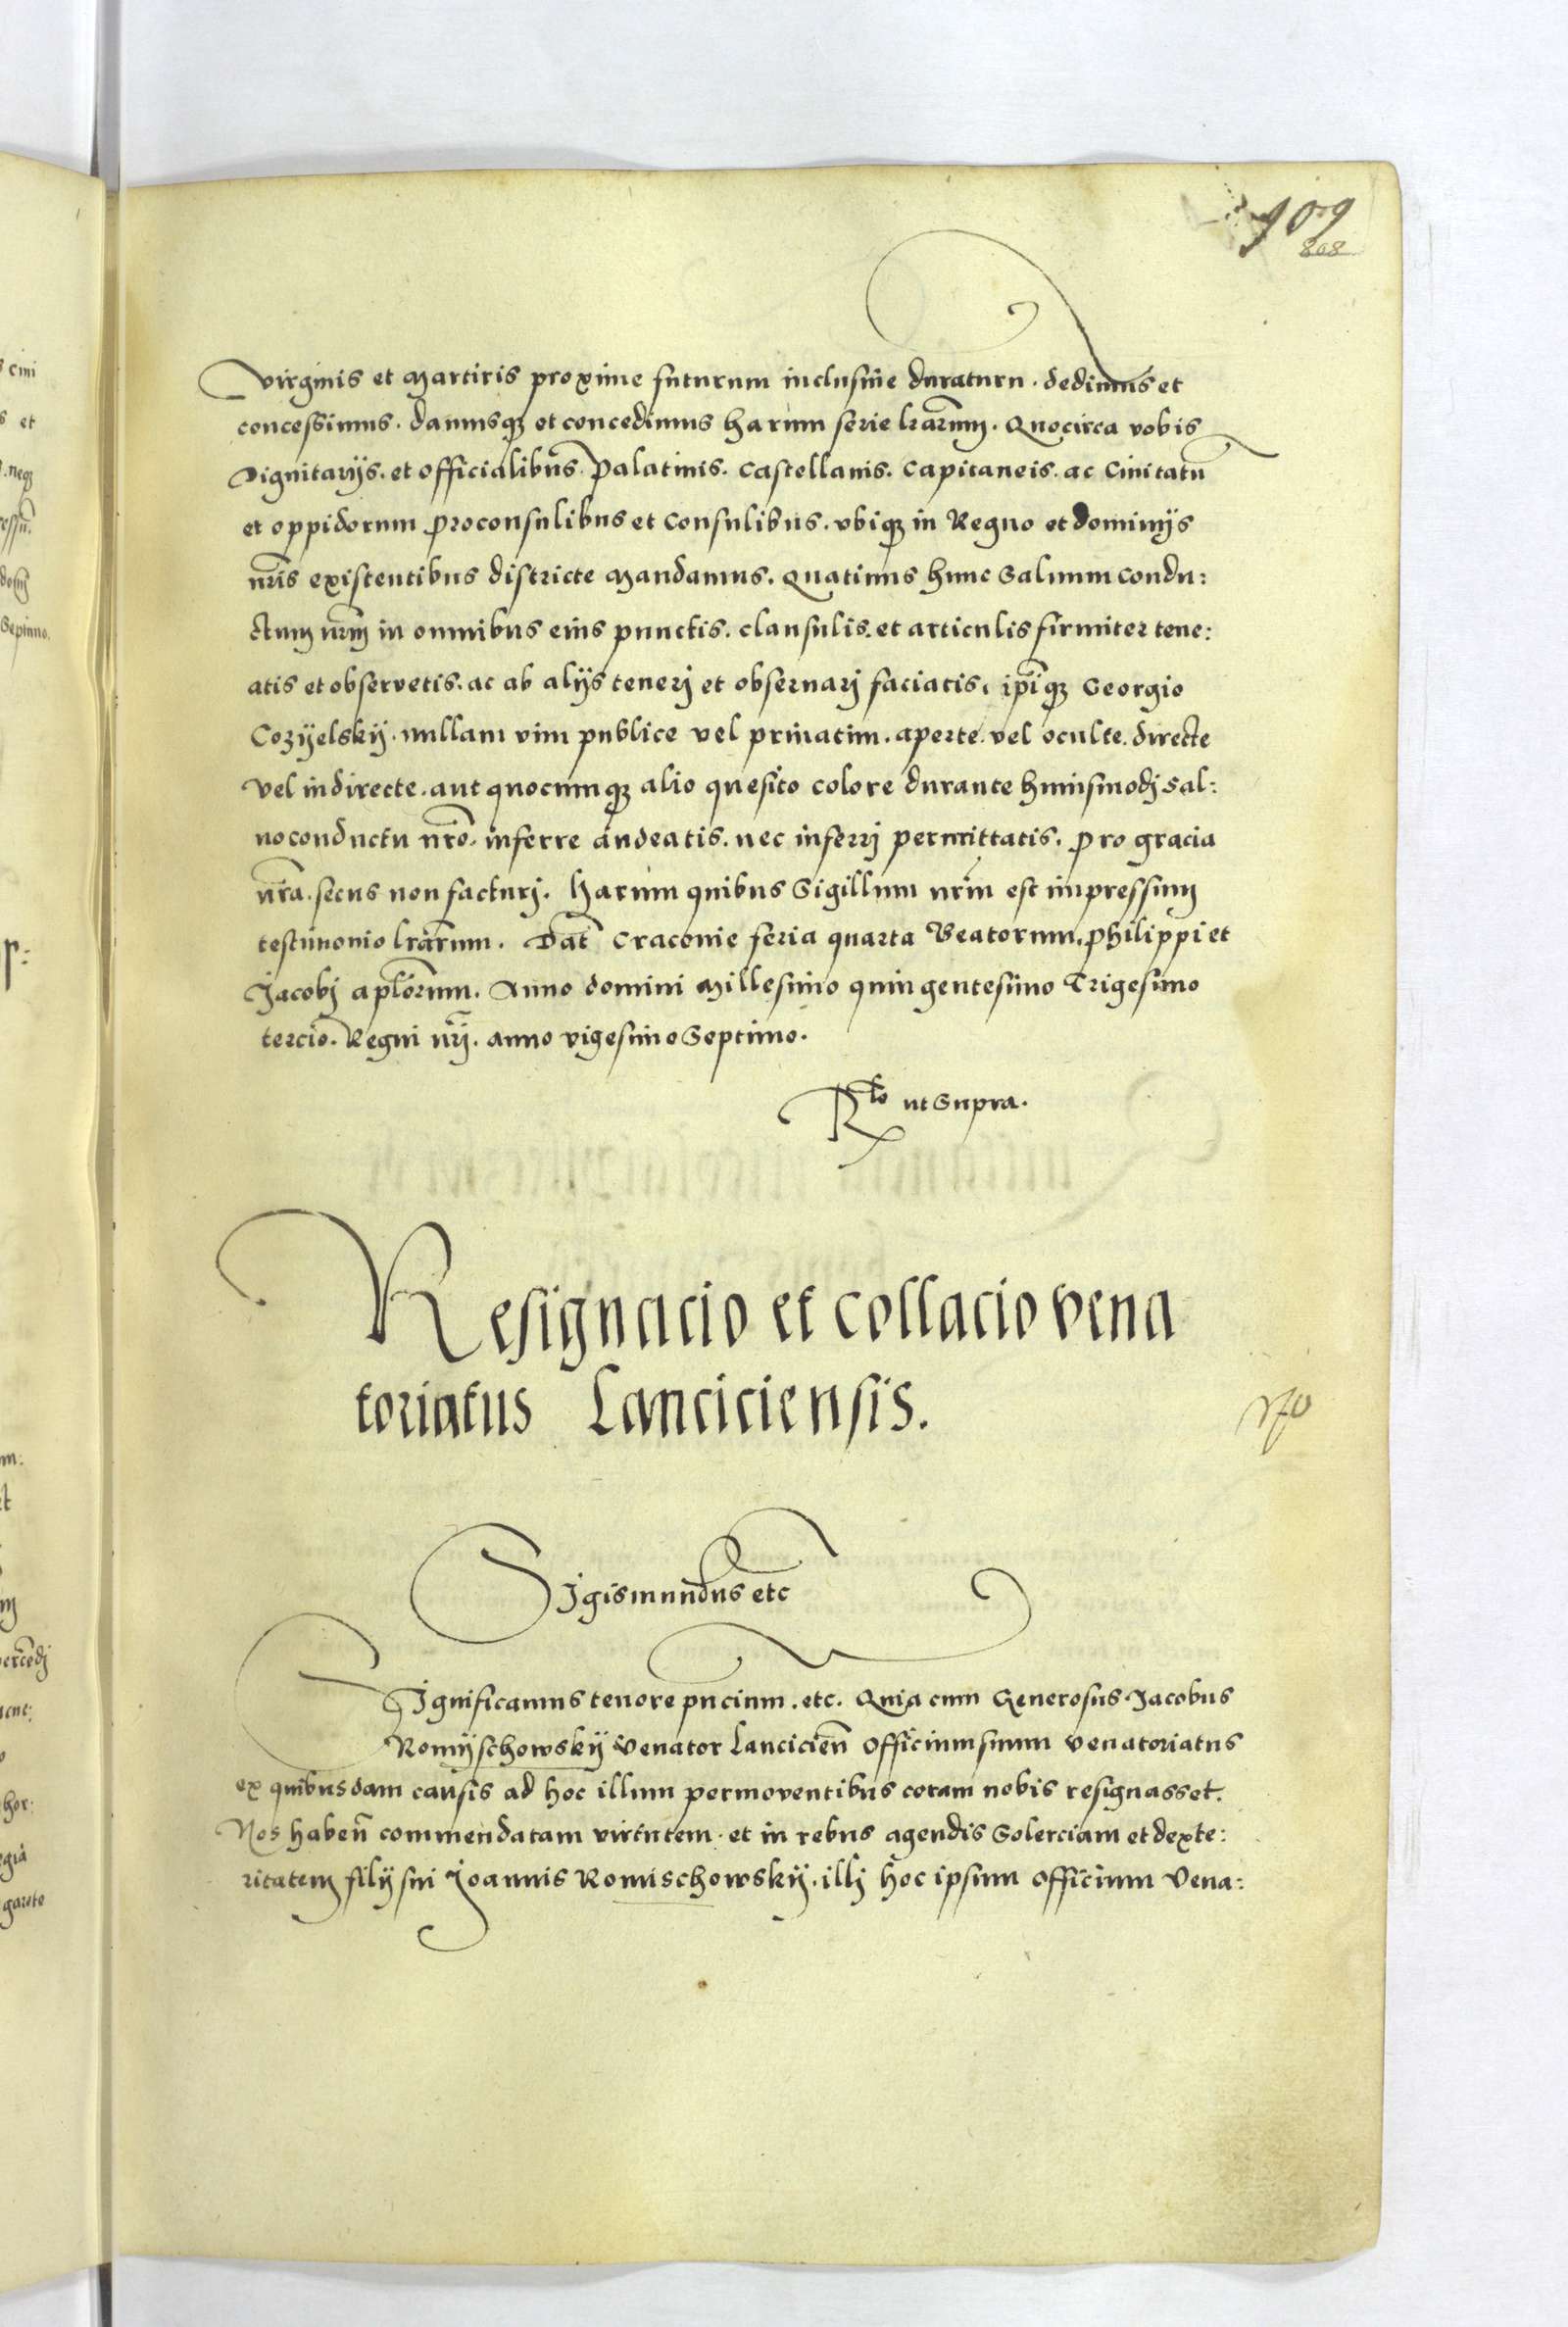 909
808
virginis et Martiris proxime futurum inclusiue duraturu. dedimus et
concessimus. damusqꝫ et concedimus harum serie lr̃arum. Quocirca vobis
Dignitarijs. et officialibus. Palatinis. Castellanis. Capitaneis. ac Ciuitatũ
et oppidorum Proconsulibus et Consulibus. vbiqꝫ in Regno et dominijs
nr̃is existentibus districte Mandamus. Quatinus hunc Saluum condu:
ctum nr̃m in omnibus eius punctis. clausulis. et articulis firmiter tene:
atis et observetis. ac ab alijs tenerj et obseruarj faciatis. ip̃iqꝫ Georgio
Cozyelskÿ. nullam vim publice vel priuatim. aperte. vel oculte. directe
vel indirecte. aut quocumqꝫ alio quesito colore durante huiusmodj Sal:
uoconductu nr̃o. inferre audeatis. nec inferrj permittatis. pro gracia
nr̃a. secus non facturj. Harum quibus Sigillum nr̃m est impressum
testimonio lr̃arum. Dat̃ Cracouie feria quarta Beatorum. Philippi et
Jacobj apl̃orum. Anno domini Millesimo quingentesimo Trigesimo
tercio. Regni nr̃j. anno vigesimo Septimo.
Rlo ut Supra.
Resignacio et collacio vena
toriatus Lanciciensis.
Sigismundus etc
Significamus tenore pñcium. etc. Quia cum Generosus Jacobus
Romÿschowskÿ Venator Lancicieñ officium suum venatoriatus
ex quibusdam causis ad hoc illum permoventibus coram nobis resignasset.
Nos habeñ commendatam virtutem. et in rebus agendis Solerciam et dexte:
ritatem filij sui Joannis Romischowskÿ. illj hoc ipsum officium Vena: